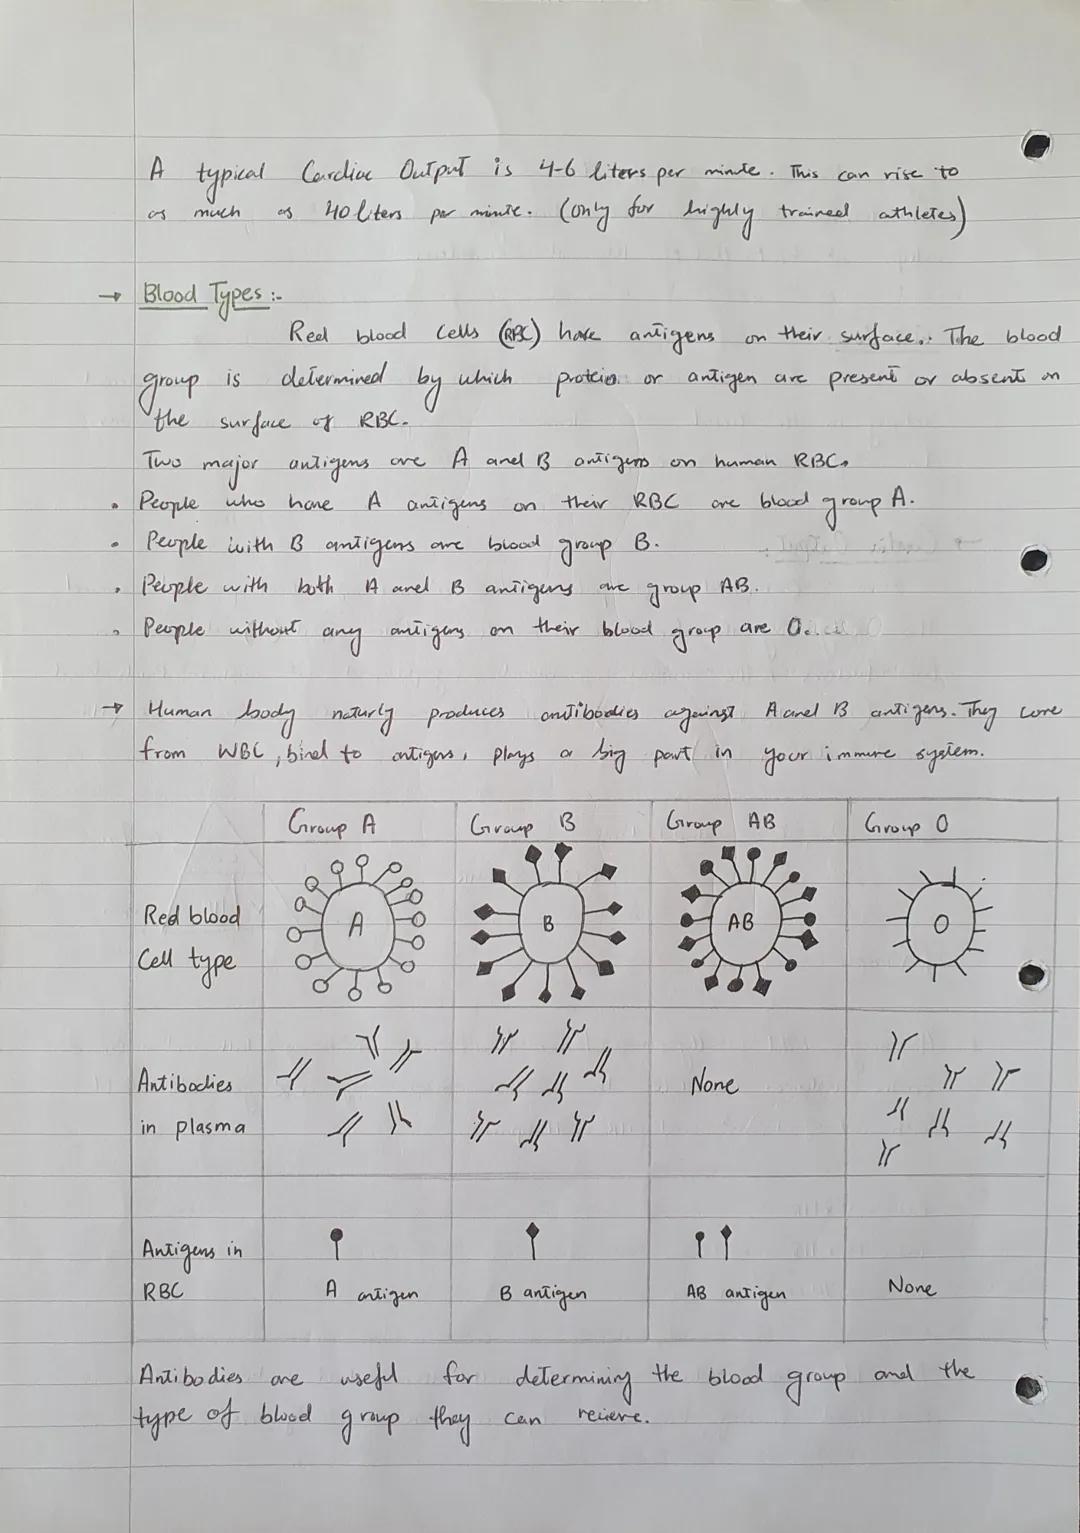 A typical Cardiac Output is 4-6 liters per minute. This can rise to
as much as 40 liters per minute. (only for highly trained athletes)
→ Blood Types :-
Red blood Cells (RBC) have antigens on their surface. The blood
group is determined by which protein or antigen are present or absent on
the surface of RBC.
Two major antigens are A and B antigens on human RBC.
• People who have A antigens on their RBC are blood group A.
• People with B antigens are blood group B.
• People with both A and B antigens are group AB.
• People without any antigens on their blood group are O.
→ Human body naturly produces antibodies against A and B antigens. They come
from WBC, bind to antigens, plays a big part in your immune system.
Group A Group B Group AB Group O
Red blood
Cell type
A B AB O
Antibodies
in plasma
None
Antigens in
RBC
A antigen B antigen AB antigen None
Antibodies are useful for determining the blood group and the
type of blood group they can recieve.